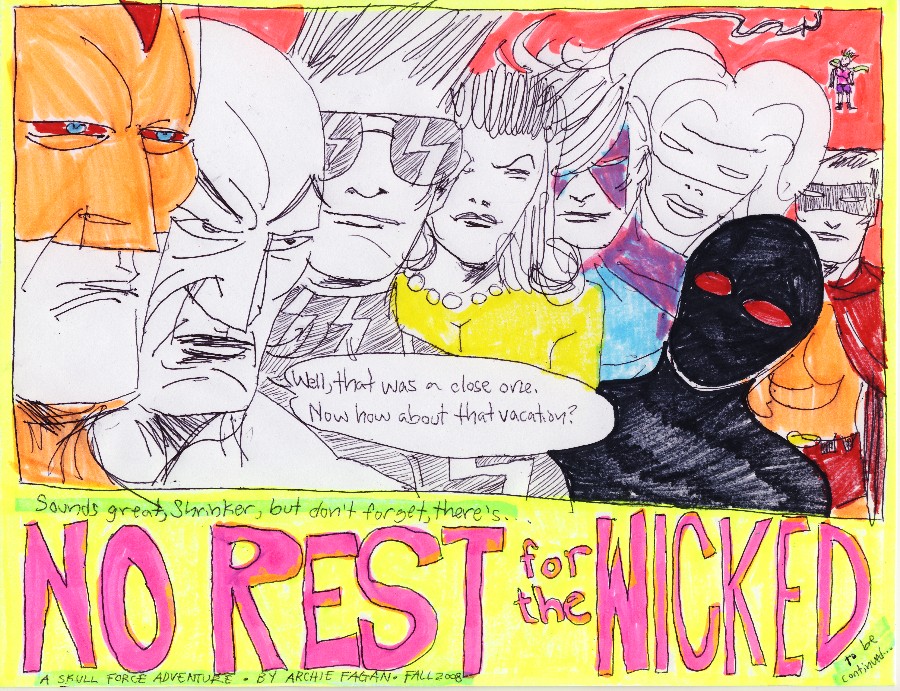 Well, that was a close one.
Now how about that vacation?
Sounds great, Shrinker, but don't forget, there's...
NO REST for the WICKED
A SKULL FORCE ADVENTURE • BY ARCHIE FAGAN • FALL 2008
to be
continued...